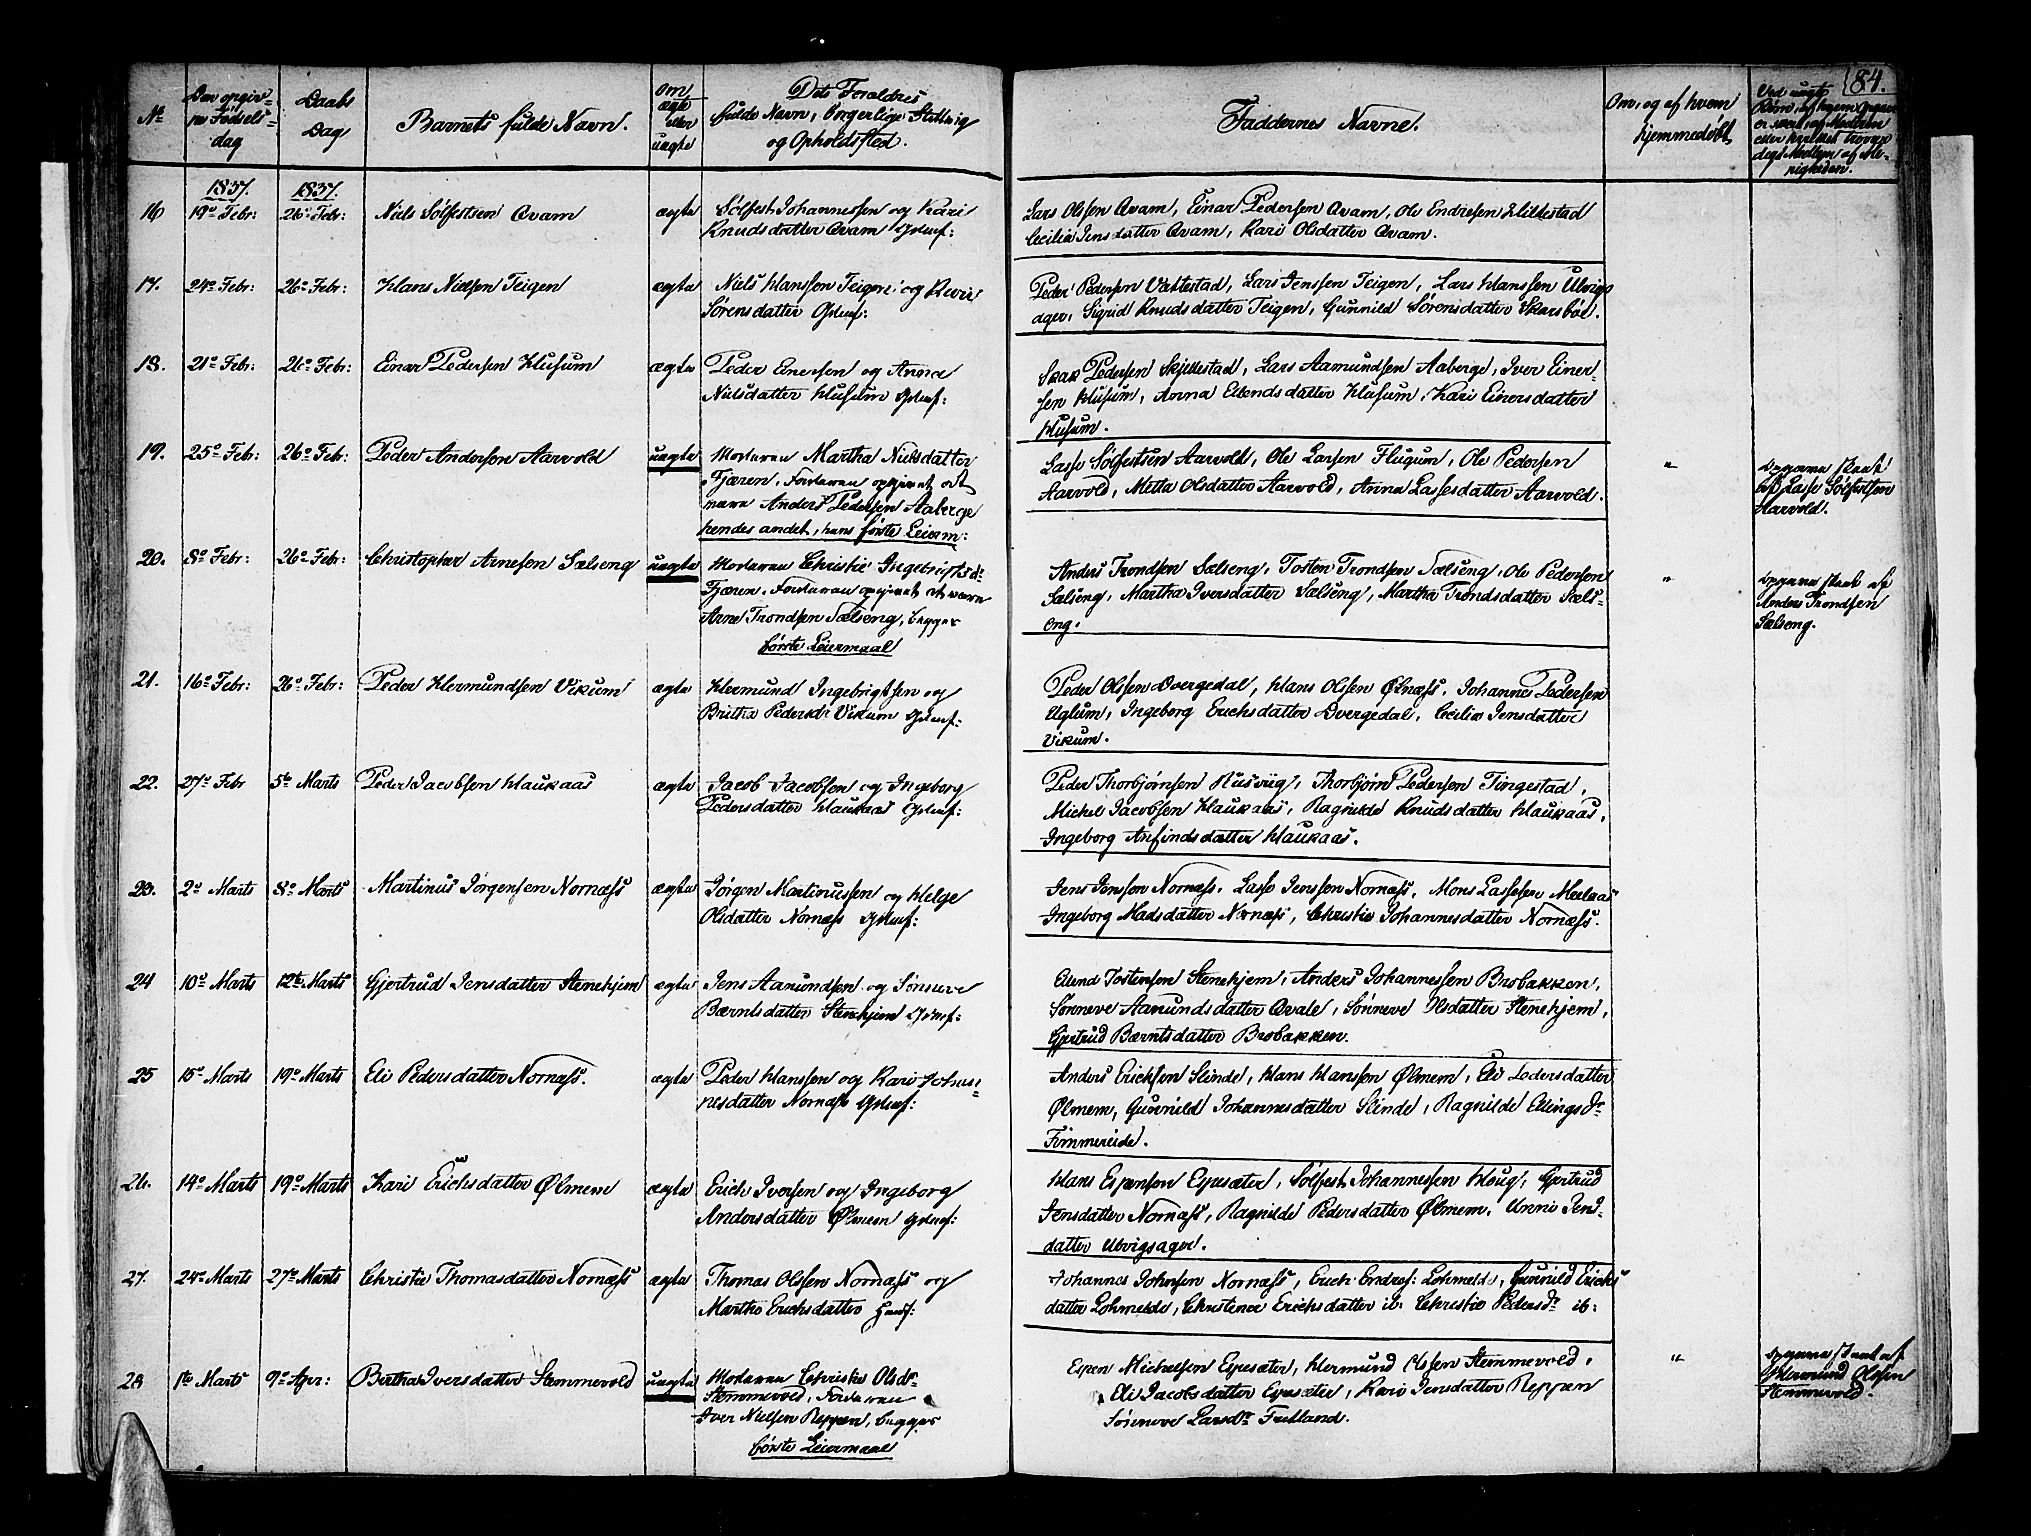 84.
No
Den opgivne Fødsels-
dag
Daabs
Dag
Barnets fulde Navn.
Om
ægte
eller
uægte
Dets Forældres
fulde Navn, borgerlige Stilling
og Opholdssted.
Faddernes Navne.
Om, og af hvem
hjemmedøbt
1837. 1837.
16 19de Febr: 26de Febr: Niels Sølfestsen Qvam ægte Sølfest Johannessen og Kari
Knudsdatter Qvam Gdmf:
Lars Olssen Qvam, Einar Pedersen Qvam, Ole Endresen Hillestad
Cecilia Jensdatter Qvam, Kari Olsdatter Qvam.
17. 24de Febr: 26de Febr: Hans Nielsen Teigen ægte Niels Hanssen Teigen og Kari
Sørensdatter Gdmf:
Peder Pedersen Vallestad, Lars Jenssen Teigen, Lars Hanssen Ulvigs
ager, Sigrid Knudsdatter Teigen, Gunnild Sørensdatter Skarsbøe.
18. 21de Febr: 26de Febr: Einar Pedersen Husum ægte Peder Einersen og Anna
Nielsdatter Husum Gdmf:
Skak Pedersen Skjellestad, Lars Aamundsen Aaberge, Iver Einer-
sen Husum, Anna Ellendsdatter Husum, Kari Einersdatter
Husum.
19. 25de Febr: 26de Febr: Peder Andersen Aarvold uægte Moderen Martha Nielsdatter
Fjæren, Faderen opgivet at
være Anders Pedersen Aaberge
hendes andet, hans første Leierm:
Lasse Sølfestsen Aarvold, Ole Larsen Flugum, Ole Pedersen
Aarvold, Metta Olsdatter Aarvold, Anna Lassesdatter Aarvold.
"
Opgivne skeet
af Lasse Sølfestsen
Aarvold.
20. 8de Febr: 26de Febr: Christopher Arnesen Sælseng uægte Moderen Christie Ingebrigtsdr
Fjæren. Faderen opgivet at være
Arne Trondsen Sælseng, begges
første Leiermaal
Anders Trondsen Sælseng, Torsten Trondsen Sælseng, Ole Pedersen
Sælseng, Martha Iversdatter Sælseng, Martha Trondsdatter Sæls-
eng.
"
Opgivne skeet af
Anders Trondsen
Sælseng.
21. 16de Febr: 26de Febr: Peder Hermundsen Vikum ægte Hermund Ingebrigtsen og
Britha Pedersdr Vikum Gdmf:
Peder Olssen Dvergedal, Hans Olssen Ølnæss, Johannes Pedersen
Uglum, Ingeborg Erichsdatter Dvergedal, Cecilia Jensdatter
Vikum.
22. 27de Febr 5te Marts Peder Jacobsen Haukaas ægte Jacob Jacobsen og Ingeborg
Pedersdatter Haukaas Gdmf:
Peder Thorbjørnsen Husviig, Thorbjørn Pedersen Tingestad,
Michel Jacobsen Haukaas, Ragnilde Knudsdatter Haukaas,
Ingeborg Anfindsdatter Haukaas.
23. 2de Marts 8de Marts Martinus Jørgensen Nornæss ægte Jørgen Martinussen og Helge
Olsdatter Nornæss Gdmf:
Jens Jenssen Nornæss, Lasse Jenssen Nornæss, Mons Lassesen Meelaas
Ingeborg Madsdatter Nornæss, Christie Johannesdatter Nornæss.
24 10de Marts 12te Marts Gjertrud Jensdatter Stenehjem ægte Jens Aamundsen og Sønneve
Bærntsdatter Stenehjem Gdmf:
Ellend Tostensen Stenehjem, Anders Johannessen Brobakken,
Sønneve Aamundsdatter Qvale, Sønneve Olsdatter Stenehjem,
Gjertrud Bærntsdatter Brobakken.
25 15de Marts 19de Marts Eli Pedersdatter Nornæss. ægte Peder Hanssen og Kari Johan-
nesdatter Nornæss Gdmf:
Anders Erichsen Slinde, Hans Hanssen Ølmem, Eli Pedersdatter
Ølmem, Gunnild Johannesdatter Slinde, Ragnilde Ellingsdr
Fimmereide.
26. 14de Marts 19de Marts Kari Erichsdatter Ølmem ægte Erich Iversen og Ingeborg
Andersdatter Ølmem Gdmf:
Hans Espensen Eggesæter, Sølfest Johannessen Houg, Gjertrud
Jensdatter Nornæss, Ragnilde Pedersdatter Ølmem, Unni Jens-
datter Ulvigsager.
27. 24de Marts 27de Marts Christie Thomasdatter Nornæss ægte Thomas Olssen Nornæss og
Martha Erichsdatter Huusf:
Johannes Johnsen Nornæss, Erich Endres: Lohmelde, Gunnild Erichs
datter Lohmelde, Christence Erichsdatter ib: Christie Pedersdr ib:
28 1te Marts 9de Apr: Britha Iversdatter Stemmevold uægte Moderen Christie Olsdr
Stemmevold, Faderen
Iver Nielsen Reppen, begges
første Leiermaal
Espen Michelsen Eggesæter, Hermund Olssen Stemmevold,
Eli Jacobsdatter Eggesæter, Kari Jensdatter Reppen
Sønneve Larsdr Fretland.
"
Opgivne skeet af
Hermund Olssen
Stemmevold.